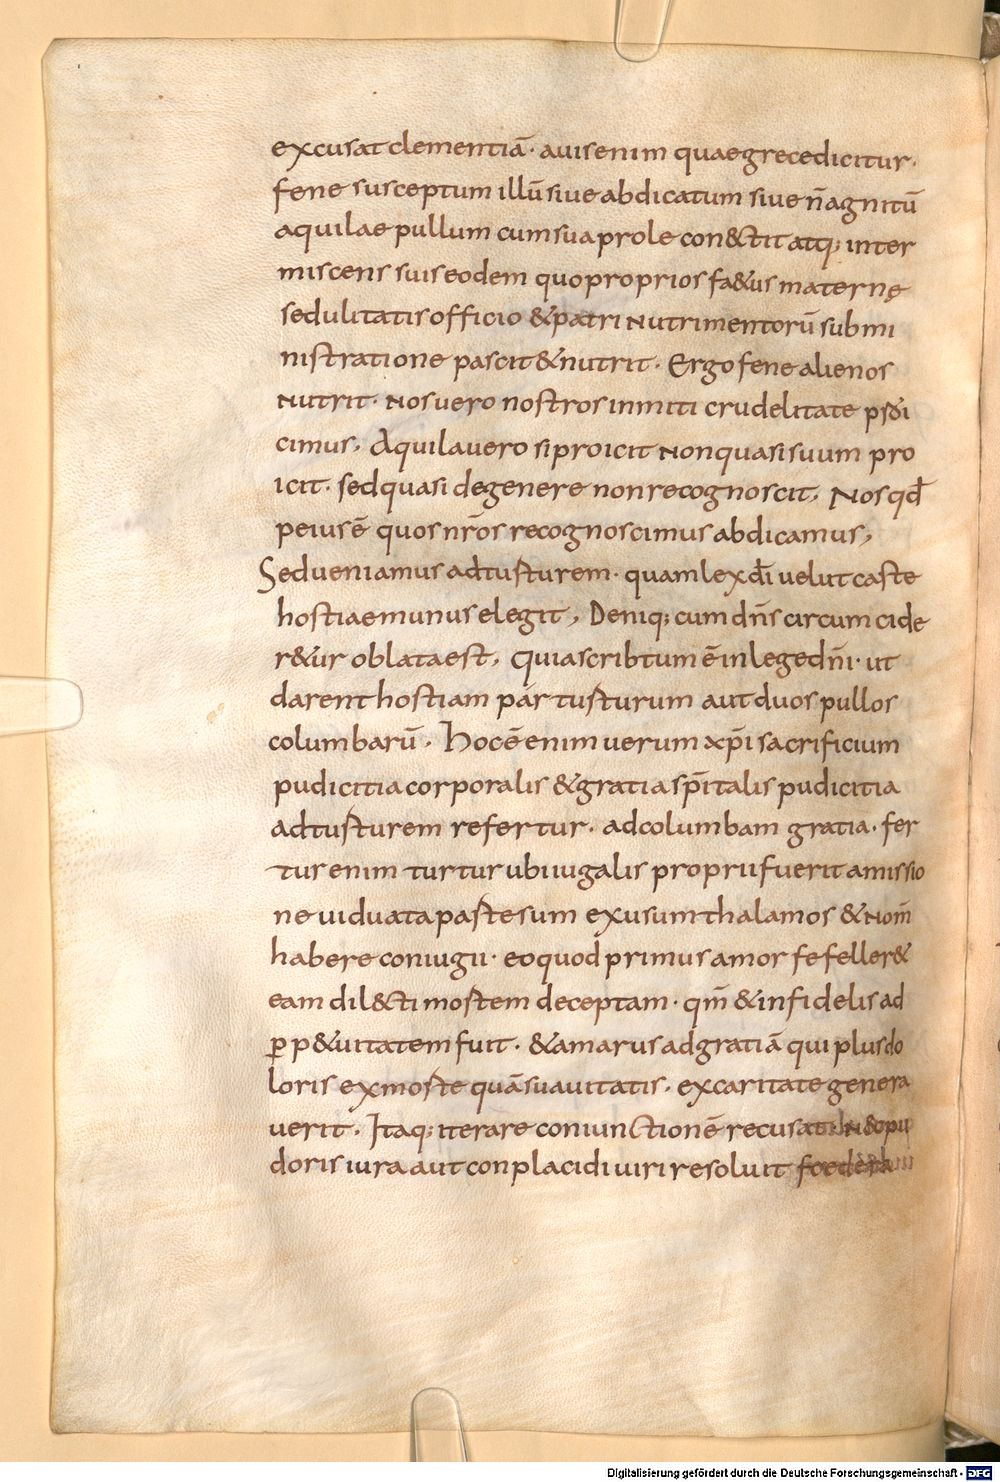 excusat clementiā· auis enim quae grece dicitur·
fene susceptum illū siue abdicatum siue n̄ agnitū
aquilae pullum cum sua prole con&ctit atq; inter
miscens suis eodem quo proprios fa&us maternę
sedulitatis officio & patri nutrimentorū submi
nistratione pascit & nutrit· Ergo fene alienos
nutrit· nos uero nostros inmiti crudelitate
cimus, Aquila uero si proicit non quasi suum pro
icit· sed quasi degenere non recognoscit, Nos qđ
peius ē quos nr̄os recognoscimus abdicamus,
Sed ueniamus ad turturem· quam lex dī uelut caste
hostiae munus elegit, Deniq; cum dn̄s circumcide
r&ur oblata est, quia scribtum ē in lege dn̄i· ut
darent hostiam par turturum aut duos pullos
columbarū· Hoc ē enim uerum xp̄i sacrificium
pudicitia corporalis & gratia sp̄italis pudicitia
ad turturem refertur· ad columbam gratia· fer
tur enim turtur ubi iugalis proprii fuerit amissio
ne uiduata pertesum ex usum thalamos & nom̄
habere coniugii· eo quod primus amor fefeller&
eam dil&cti mortem deceptam· qm̄ & infidelis ad
ꝑp&uitatem fuit· & amarus ad gratiā qui plus do
loris ex morte quā suauitatis, ex caritate genera
uerit· Itaq; iterare coniunctionē recusat·
doris iura aut conplaciti uiri resoluit
Digitalisierung gefördert durch die Deutsche Forschungsgemeinschaft - DFG